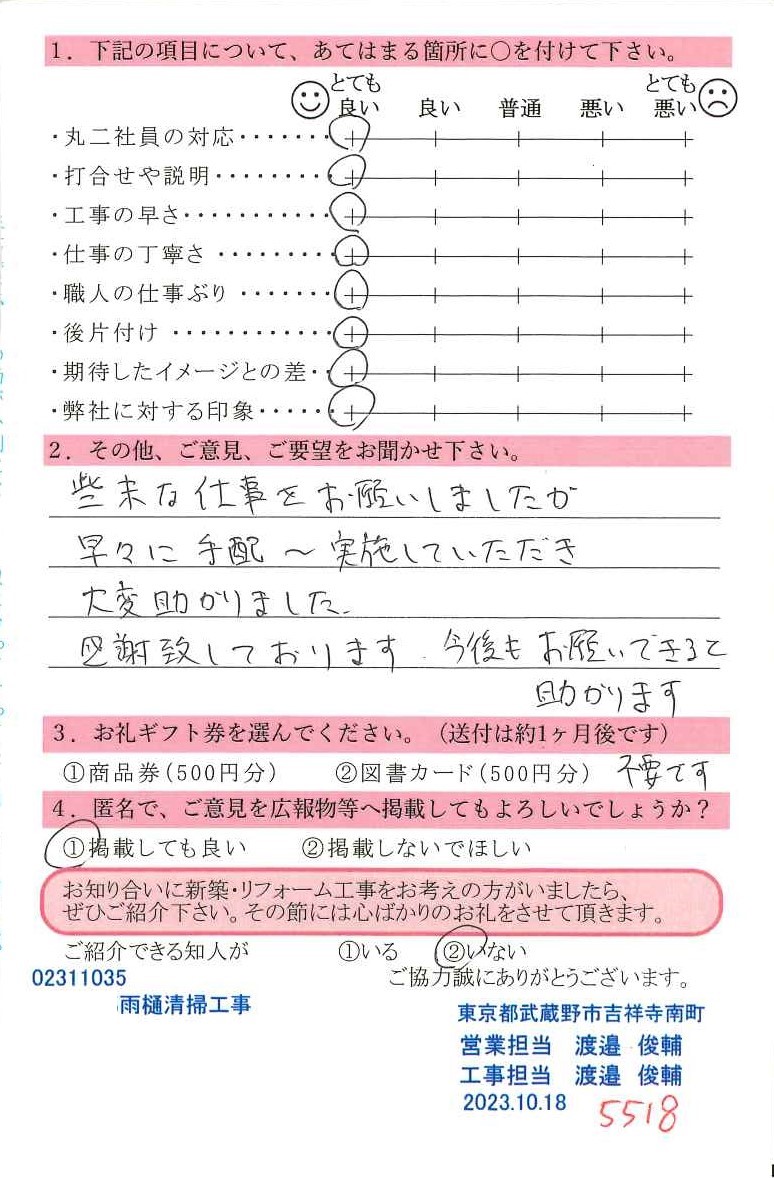 1．下記の項目について、あてはまる箇所に○を付けて下さい。
とても良い 良い 普通 悪い とても悪い
・丸二社員の対応・・・・・・・
・打合せや説明・・・・・・・・・
・工事の早さ・・・・・・・・・・・
・仕事の丁寧さ・・・・・・・・・
・職人の仕事ぶり・・・・・・・
・後片付け・・・・・・・・・・・・
・期待したイメージとの差・・
・弊社に対する印象・・・・・
2．その他、ご意見、ご要望をお聞かせ下さい。
些末な仕事をお願いしましたが
早々に手配～実施していただき
大変助かりました.
感謝致しております．今後もお願いできると
助かります
3．お礼ギフト券を選んでください。（送付は約1ヶ月後です）
①商品券(500円分) ②図書カード(500円分) 不要です
4．匿名で、ご意見を広報物等へ掲載してもよろしいでしょうか？
①掲載しても良い ②掲載しないでほしい
お知り合いに新築・リフォーム工事をお考えの方がいましたら、
ぜひご紹介下さい。その節には心ばかりのお礼をさせて頂きます。
ご紹介できる知人が ①いる ②いない
ご協力誠にありがとうございます。
02311035
雨樋清掃工事
東京都武蔵野市吉祥寺南町
営業担当 渡邉 俊輔
工事担当 渡邉 俊輔
2023.10.18
5518